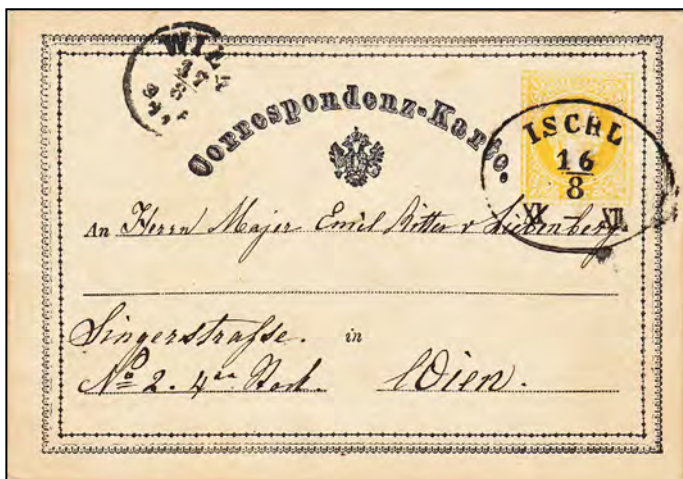 WIEN
17
8
Correspondenz-Karte.
ISCHL
16
8
An Herrn Major Emil Ritter v Liebenberg
Singerstrasse. in
No 2. 4ter Stock. Wien.